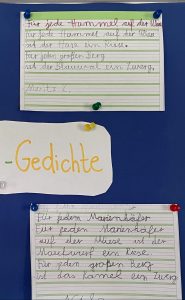 Für jede Hummel auf der Wiese
Für jede Hummel auf der Wiese
ist der Hase ein Riese.
Für jeden großen Berg
ist der Blauwal ein Zwerg.
Moritz
- Gedichte
Für jedem Marienkäfer
Für jedem Marienkäfer
auf der Wiese ist der
Maulwurf ein Riese
Für jeden großen Berg
ist das Kamel ein Zwerg